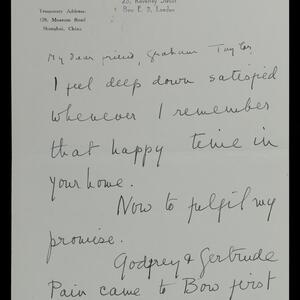 Temporary Address:
128, Museum Road
Shanghai, China
Street
Bow E. 3, London
My dear friend, Graham Taylor
I feel deep down satisfied
whenever I remember
that happy time in
your home.
Now to fulfil my
promise.
Godfrey & Gertrude
Pain came to Bow first